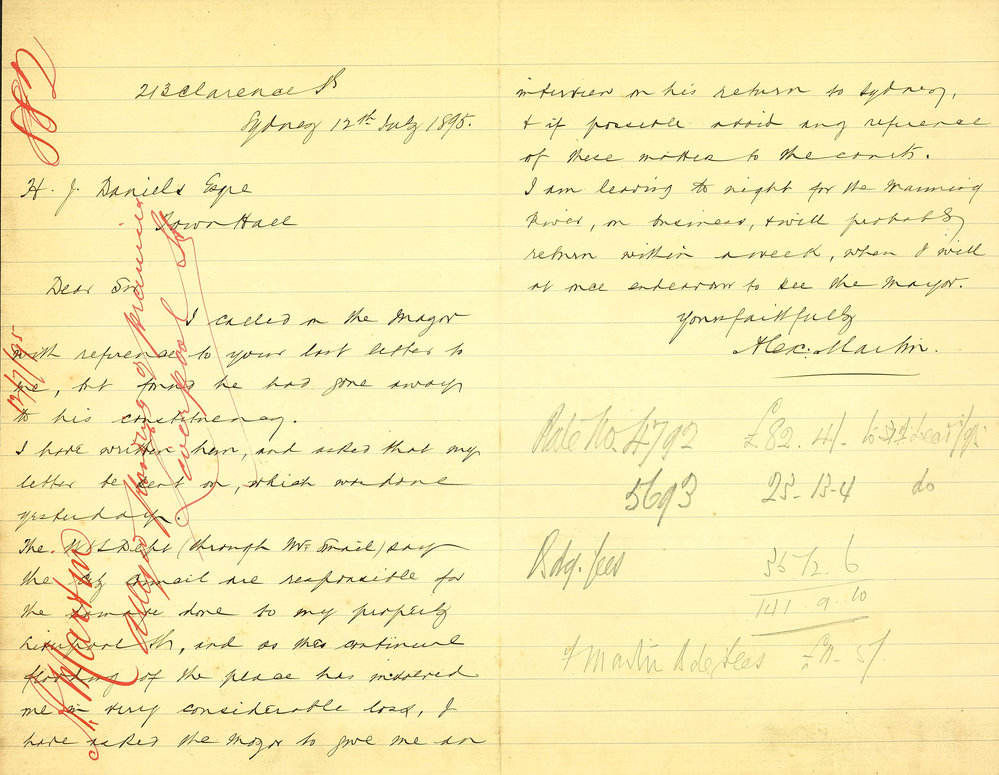 213 Clarence St
Sydney 12th July 1895.
H. J. Daniels Esqre
Town Hall
Dear Sir
I called on the Mayor
with reference to your last letter to
me, but found he had gone away
to his constituency.
I have written him, and asked that my
letter be sent on, which was done
yesterday.
The W&S Dept (through Mr Smail) say
the City Council are responsible for
the damage done to my property
Liverpool St, and as the continual
flooding of the place has involved
me in very considerable loss, I
have asked the Mayor to give me an
interview on his return to Sydney,
& if possible avoid any reference
of these matters to the courts.
I am leaving to night for the Manning
River, on business, & will probably
return within a week, when I will
at once endeavour to see the Mayor.
Yours faithfully
Alex: Martin.
Rate No. 4792 £82. 4/-
5693 23-13-4 do
Bdg. fees 35 12. 6
141 9 10
Martin Bdg Fees
882
12/7/95
A. Martin
Alleged flooding of premises
Liverpool St